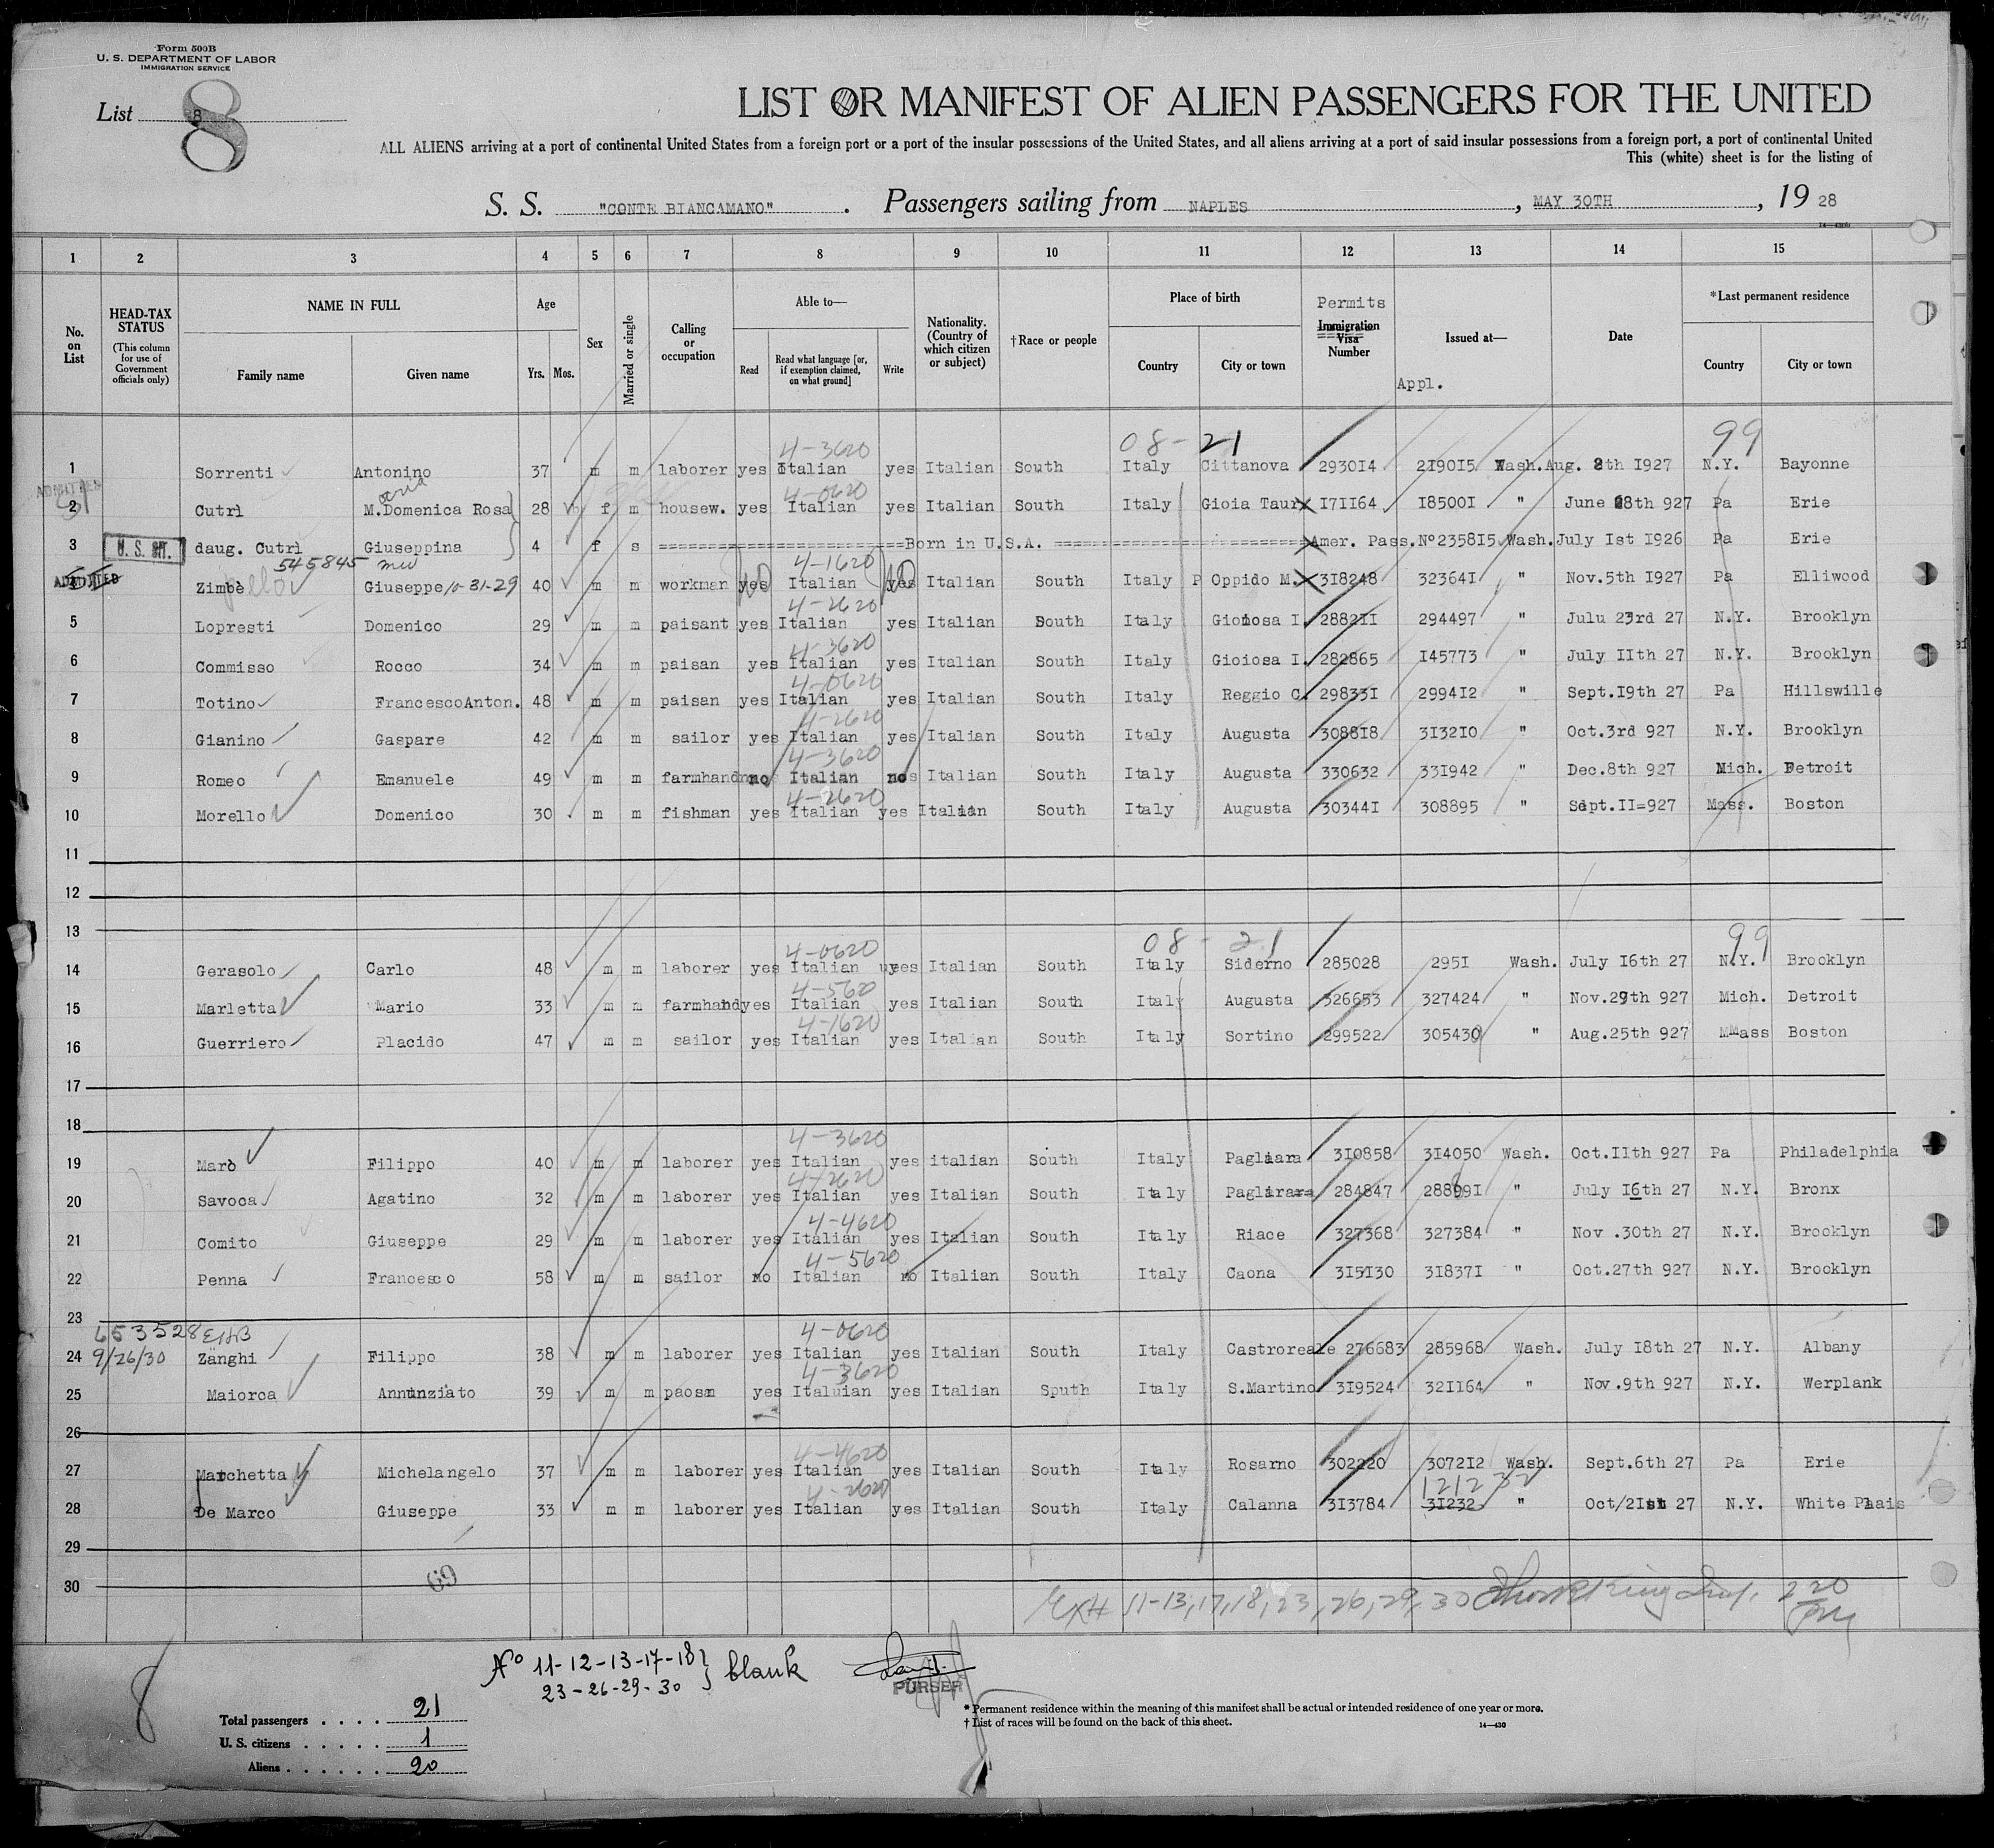 Form 500B
U. S. DEPARTMENT OF LABOR
IMMIGRATION SERVICE
List 8
8
LIST OR MANIFEST OF ALIEN PASSENGERS FOR THE UNITED
ALL ALIENS arriving at a port of continental United States from a foreign port or a port of the insular possessions of the United States, and all aliens arriving at a port of said insular possessions from a foreign port, a port of continental United
This (white) sheet is for the listing of
S. S. "CONTE BIANCAMANO". Passengers sailing from NAPLES, MAY 30TH, 19 28
1 2 3 4 5 6 7 8 9 10 11 12 13 14 15
No. on List
HEAD-TAX STATUS
(This column for use of Government officials only)
NAME IN FULL
Family name Given name
Age
Yrs. Mos.
Sex
Married or single
Calling or occupation
Able to—
Read
Read what language [or, if exemption claimed, on what ground]
Write
Nationality. (Country of which citizen or subject)
†Race or people
Place of birth
Country City or town
Permits
Immigration Visa Number
Issued at—
Appl.
Date
*Last permanent residence
Country City or town
4-3620 08-21 99
1 Sorrenti Antonino 37 m m laborer yes Italian yes Italian South Italy Cittanova 293014 219015 Wash. Aug. 8th 1927 N.Y. Bayonne
ADMITTED aria 4-0620
2 Cutrì M.Domenica Rosa 28 f m housew. yes Italian yes Italian South Italy Gioia Taur 171164 185001 " June 28th 927 Pa Erie
3 U. S. CIT. daug. Cutrì Giuseppina 4 f s Born in U.S.A. Amer. Pass. Nº235815 Wash. July 1st 1926 Pa Erie
545845 4-1620
ADMITTED Zimbè Giuseppe 10-31-29 40 m m workman yes no Italian yes no Italian South Italy Oppido M. 318248 323641 " Nov.5th 1927 Pa Elliwood
4-2620
5 Lopresti Domenico 29 m m paisant yes Italian yes Italian South Italy Gioiosa I. 288211 294497 " Julu 23rd 27 N.Y. Brooklyn
4-3620
6 Commisso Rocco 34 m m paisan yes Italian yes Italian South Italy Gioiosa I. 282865 145773 " July 11th 27 N.Y. Brooklyn
4-0620
7 Totino FrancescoAnton. 48 m m paisan yes Italian yes Italian South Italy Reggio C. 298331 299412 " Sept.19th 27 Pa Hillswille
4-2620
8 Gianino Gaspare 42 m m sailor yes Italian yes Italian South Italy Augusta 308818 313210 " Oct.3rd 927 N.Y. Brooklyn
4-3620
9 Romeo Emanuele 49 m m farmhand no Italian no Italian South Italy Augusta 330632 331942 " Dec.8th 927 Mich. Detroit
4-2620
10 Morello Domenico 30 m m fishman yes Italian yes Italian South Italy Augusta 303441 308895 " Sept.11=927 Mass. Boston
11
12
13
4-0620 08-21 99
14 Gerasolo Carlo 48 m m laborer yes Italian yes Italian South Italy Siderno 285028 2951 Wash. July 16th 27 N.Y. Brooklyn
4-5620
15 Marletta Mario 33 m m farmhand yes Italian yes Italian South Italy Augusta 326653 327424 " Nov.29th 927 Mich. Detroit
4-1620
16 Guerriero Placido 47 m m sailor yes Italian yes Italian South Italy Sortino 299522 305430 " Aug.25th 927 Mass Boston
17
18
4-3620
19 Marò Filippo 40 m m laborer yes Italian yes italian South Italy Pagliara 310858 314050 Wash. Oct.11th 927 Pa Philadelphia
4-2620
20 Savoca Agatino 32 m m laborer yes Italian yes Italian South Italy Pagliara 284847 288991 " July 16th 27 N.Y. Bronx
4-4620
21 Comito Giuseppe 29 m m laborer yes Italian yes Italian South Italy Riace 327368 327384 " Nov .30th 27 N.Y. Brooklyn
4-5620
22 Penna Francesco 58 m m sailor no Italian no Italian South Italy Caona 315130 318371 " Oct.27th 927 N.Y. Brooklyn
23
653528 EHB 4-0620
24 9/26/30 Zanghi Filippo 38 m m laborer yes Italian yes Italian South Italy Castroreale 276683 285968 Wash. July 18th 27 N.Y. Albany
4-3620
25 Maiorca Annunziato 39 m m yes Italuian yes Italian Sputh Italy S.Martino 319524 321164 " Nov.9th 927 N.Y. Werplank
26
4-4620
27 Marchetta Michelangelo 37 m m laborer yes Italian yes Italian South Italy Rosarno 302220 307212 Wash. Sept.6th 27 Pa Erie
4-2620 121232
28 De Marco Giuseppe 33 m m laborer yes Italian yes Italian South Italy Calanna 313784 31232 " Oct/21st 27 N.Y. White Plais
29
30
69
11-13, 17, 18, 23, 26, 29, 30
Nº 11-12-13-17-18 } blank
23-26-29-30
PURSER
8
Total passengers . . . . 21
U. S. citizens . . . . . 1
Aliens . . . . . . 20
* Permanent residence within the meaning of this manifest shall be actual or intended residence of one year or more.
† List of races will be found on the back of this sheet.
14—430